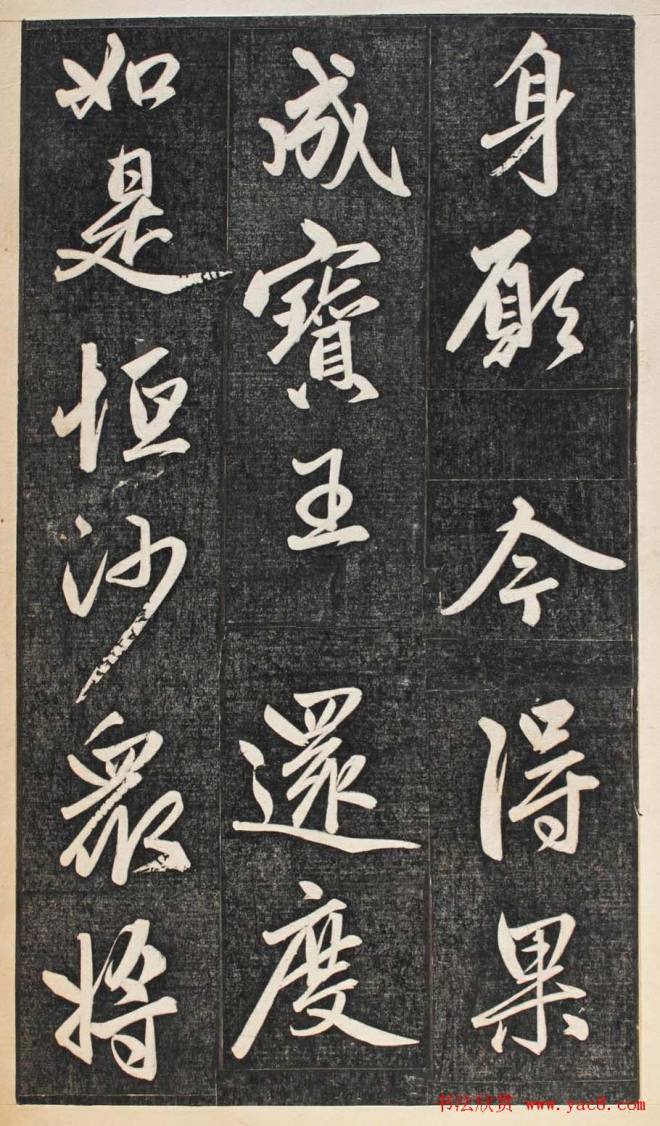 身願今得果
成寶王還度
如是恒沙衆將
书法欣赏 www.yac8.com